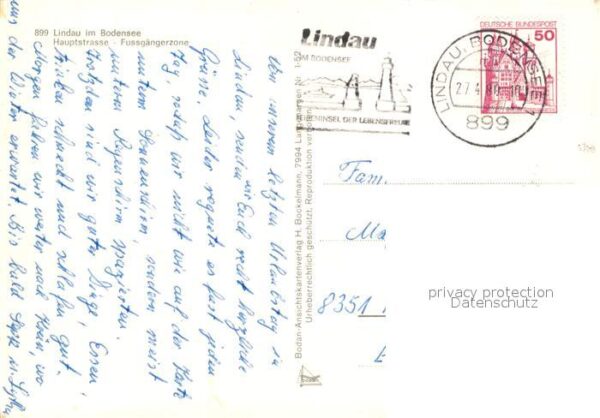 899 Lindau im Bodensee
Hauptstrasse - Fussgängerzone
Von unserem letzten Urlaubstag in
Lindau, senden wir Euch recht herzliche
Grüsse. Leider regnets es fast jeden
Tag, so daß wir nicht wie auf der Karte
unterm Sonnenschirm, sondern meist
unterm Regenschirm spazierten.
Trotzdem sind wir guter Dinge, Essen,
Trinken schmeckt und schlafen gut.
Morgen fahren wir weiter nach Hause, wo
uns der Winter erwartet. Bis bald
Bodan-Ansichtskartenverlag H. Bockelmann, 7994 Langenargen Nr.
Urheberrechtlich geschützt, Reproduktion verboten
Lindau
IM BODENSEE
FERIENINSEL DER LEBENSFREUDE
DEUTSCHE BUNDESPOST
50
LINDAU, BODENSEE 1
27.4.80
899
Fam.
8351
privacy protection
Datenschutz